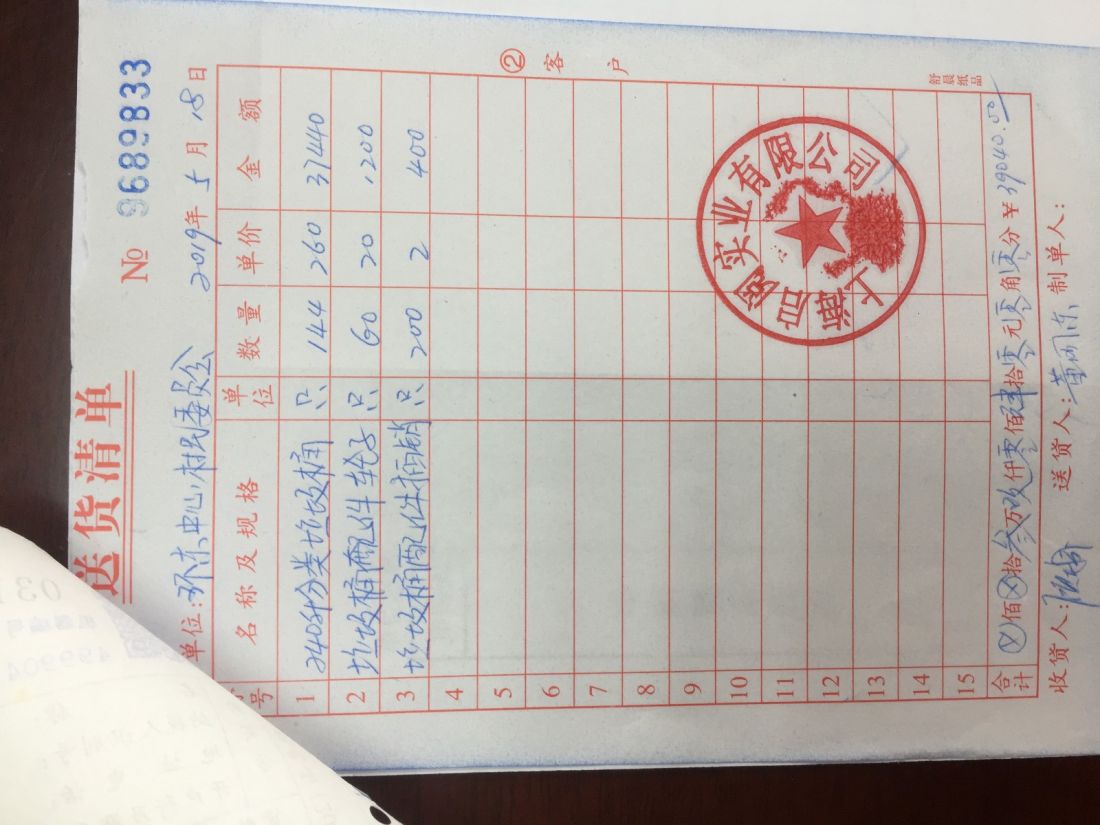 送货清单
№ 9689833
单位:环东中心村民委员会 2019年5月18日
号 名称及规格 单位 数量 单价 金额
1 240升分类垃圾桶 只 144 260 37440
2 垃圾桶配件轮子 只 60 20 1200
3 垃圾桶配件桶销 只 200 2 400
4
5
6
7
8
9
10
11
12
13
14
15
合计 佰 拾叁万玖仟零佰肆拾零元零角零分 ¥39040.00
收货人: 送货人: 制单人:
②客户
舒晨纸品
上海 实业有限公司